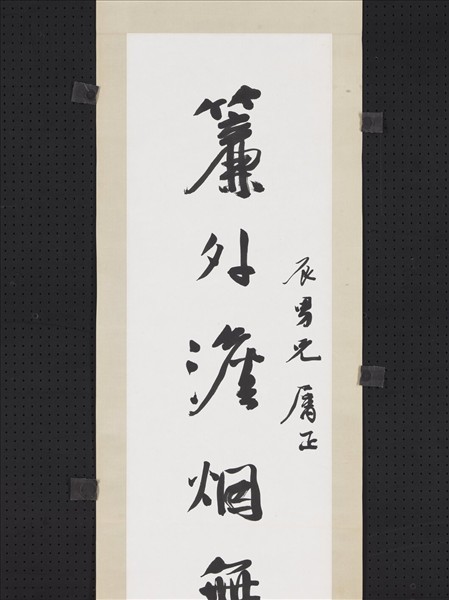 辰男兄屬正
簾外澹烟無